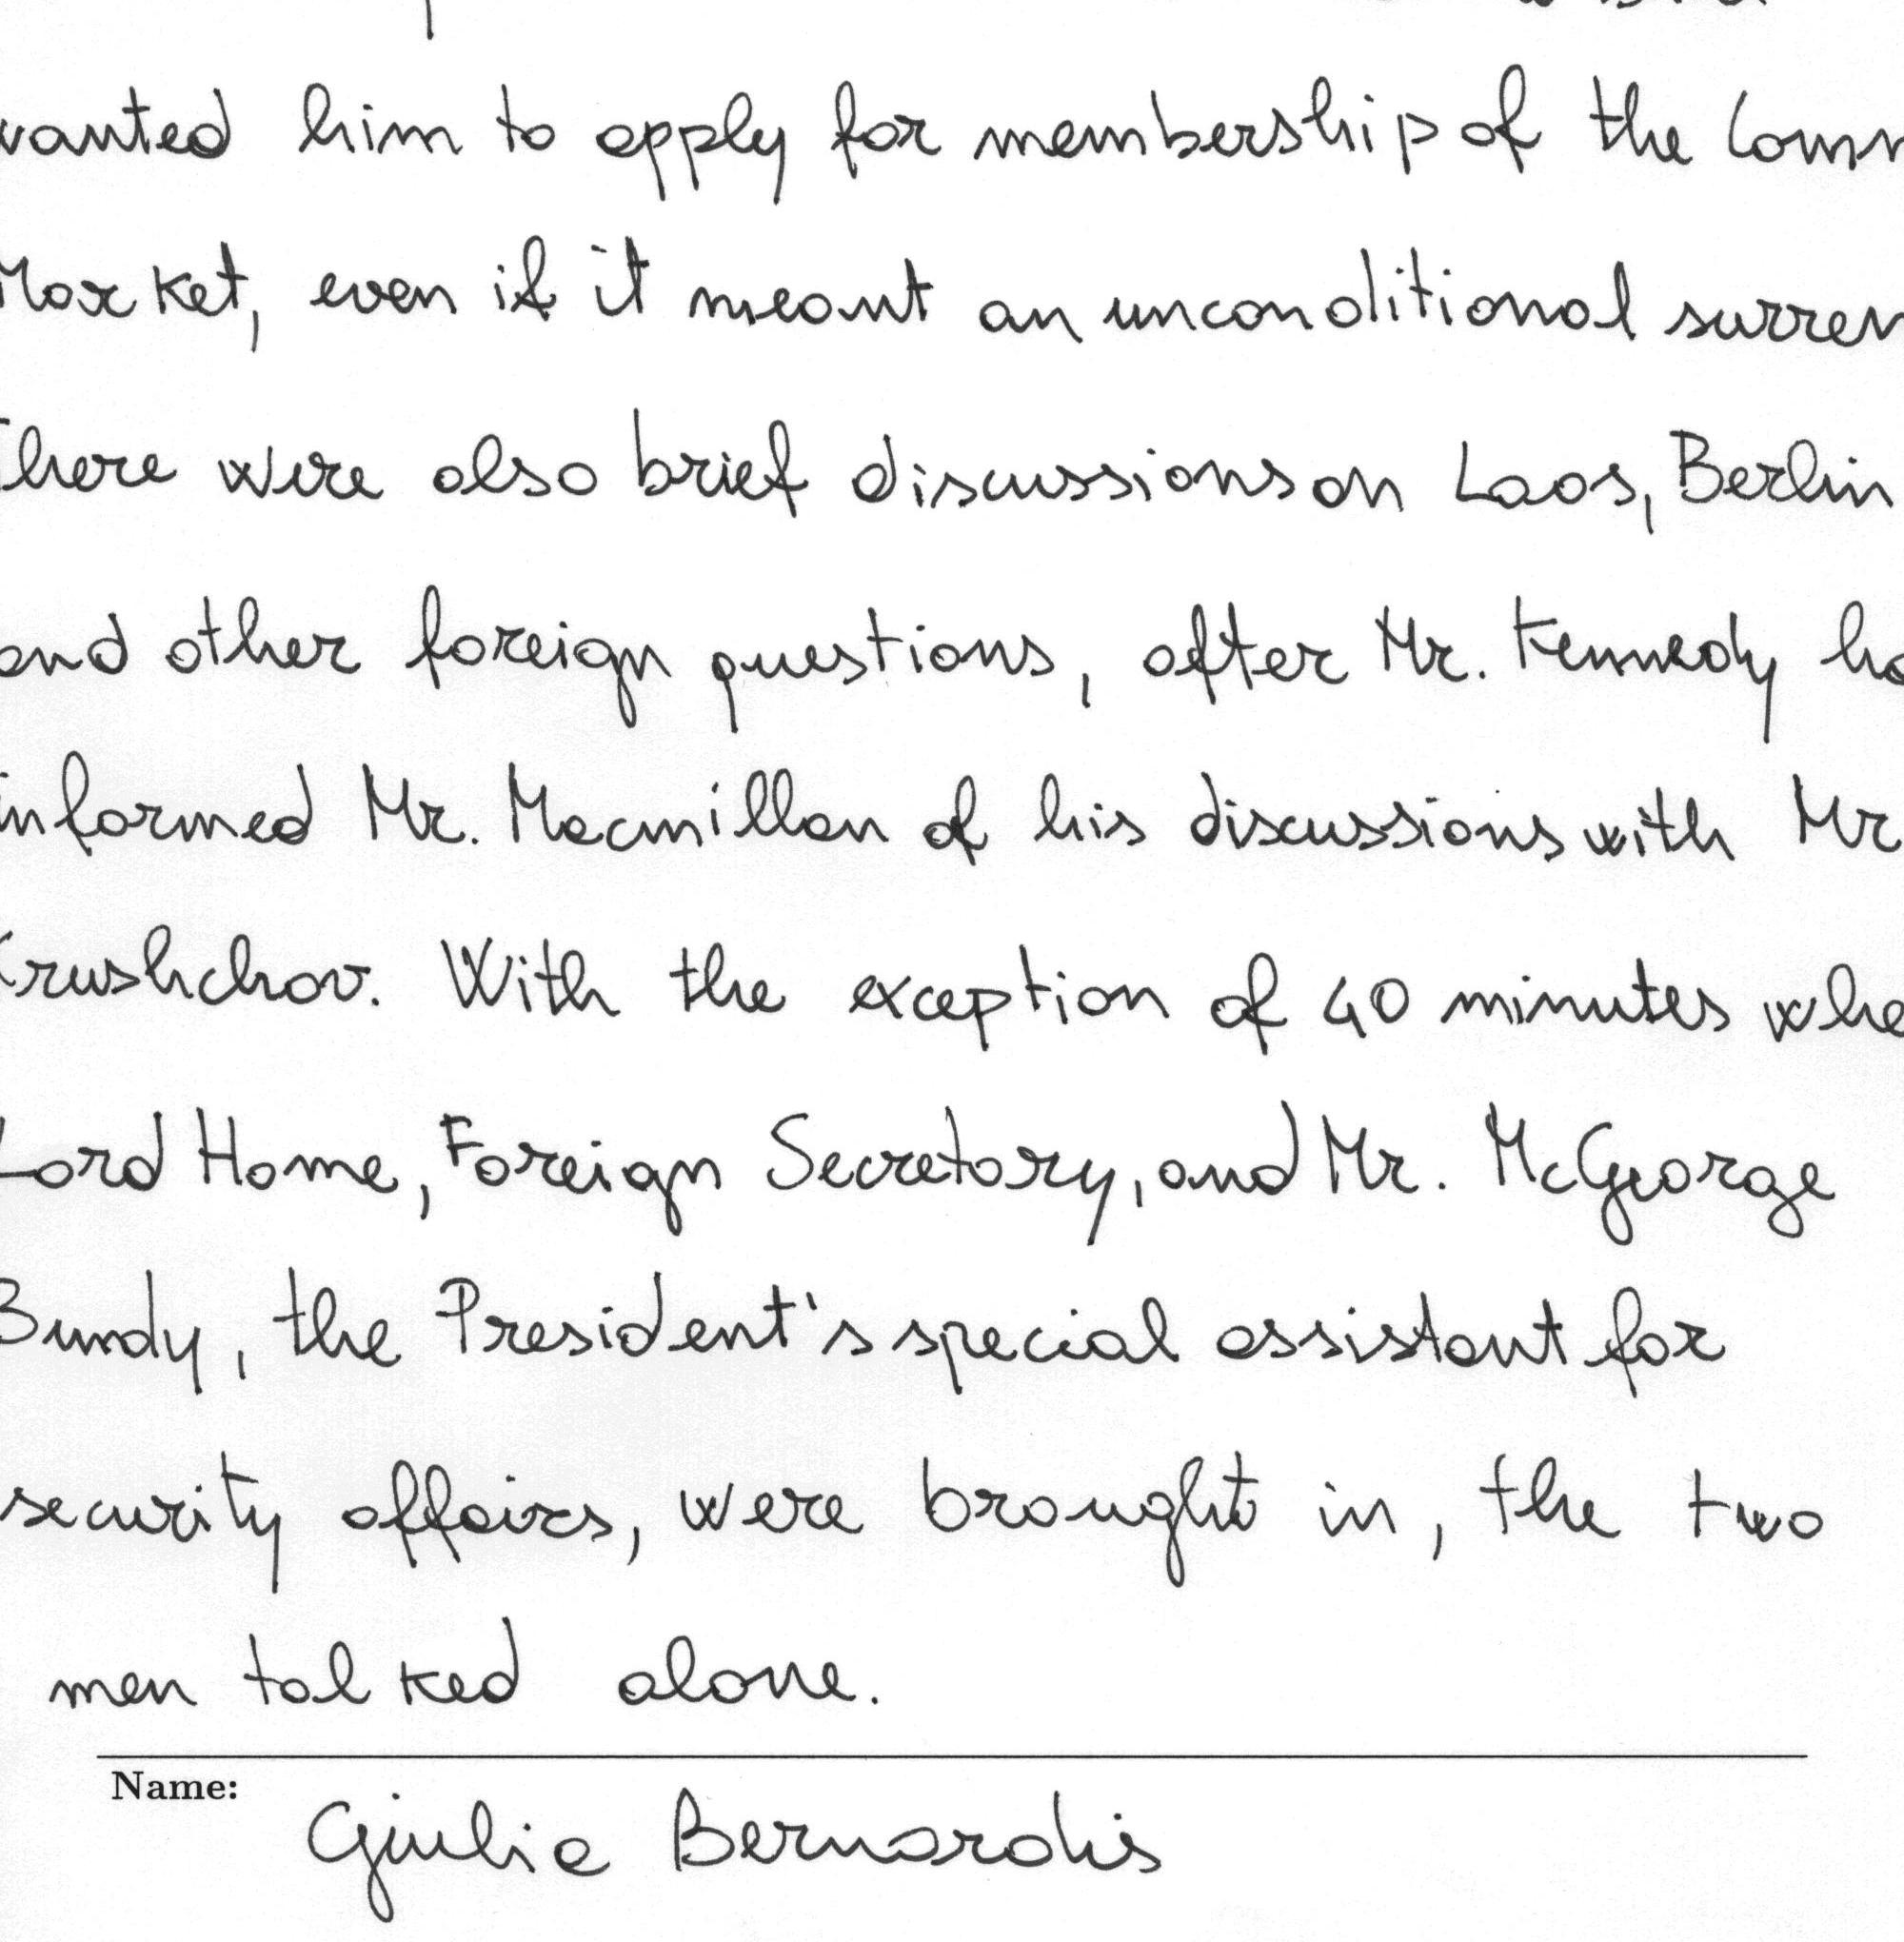 wanted him to apply for membership of the Comm
Market, even if it meant an unconditional surren
There were also brief discussions on Laos, Berlin
and other foreign questions, after Mr. Kennedy ha
informed Mr. Macmillan of his discussions with Mr
Krushchov. With the exception of 40 minutes whe
Lord Home, Foreign Secretory, and Mr. McGeorge
Bundy, the President's special assistant for
security affairs, were brought in, the two
men talked alone.
Name: Giulia Bernardis